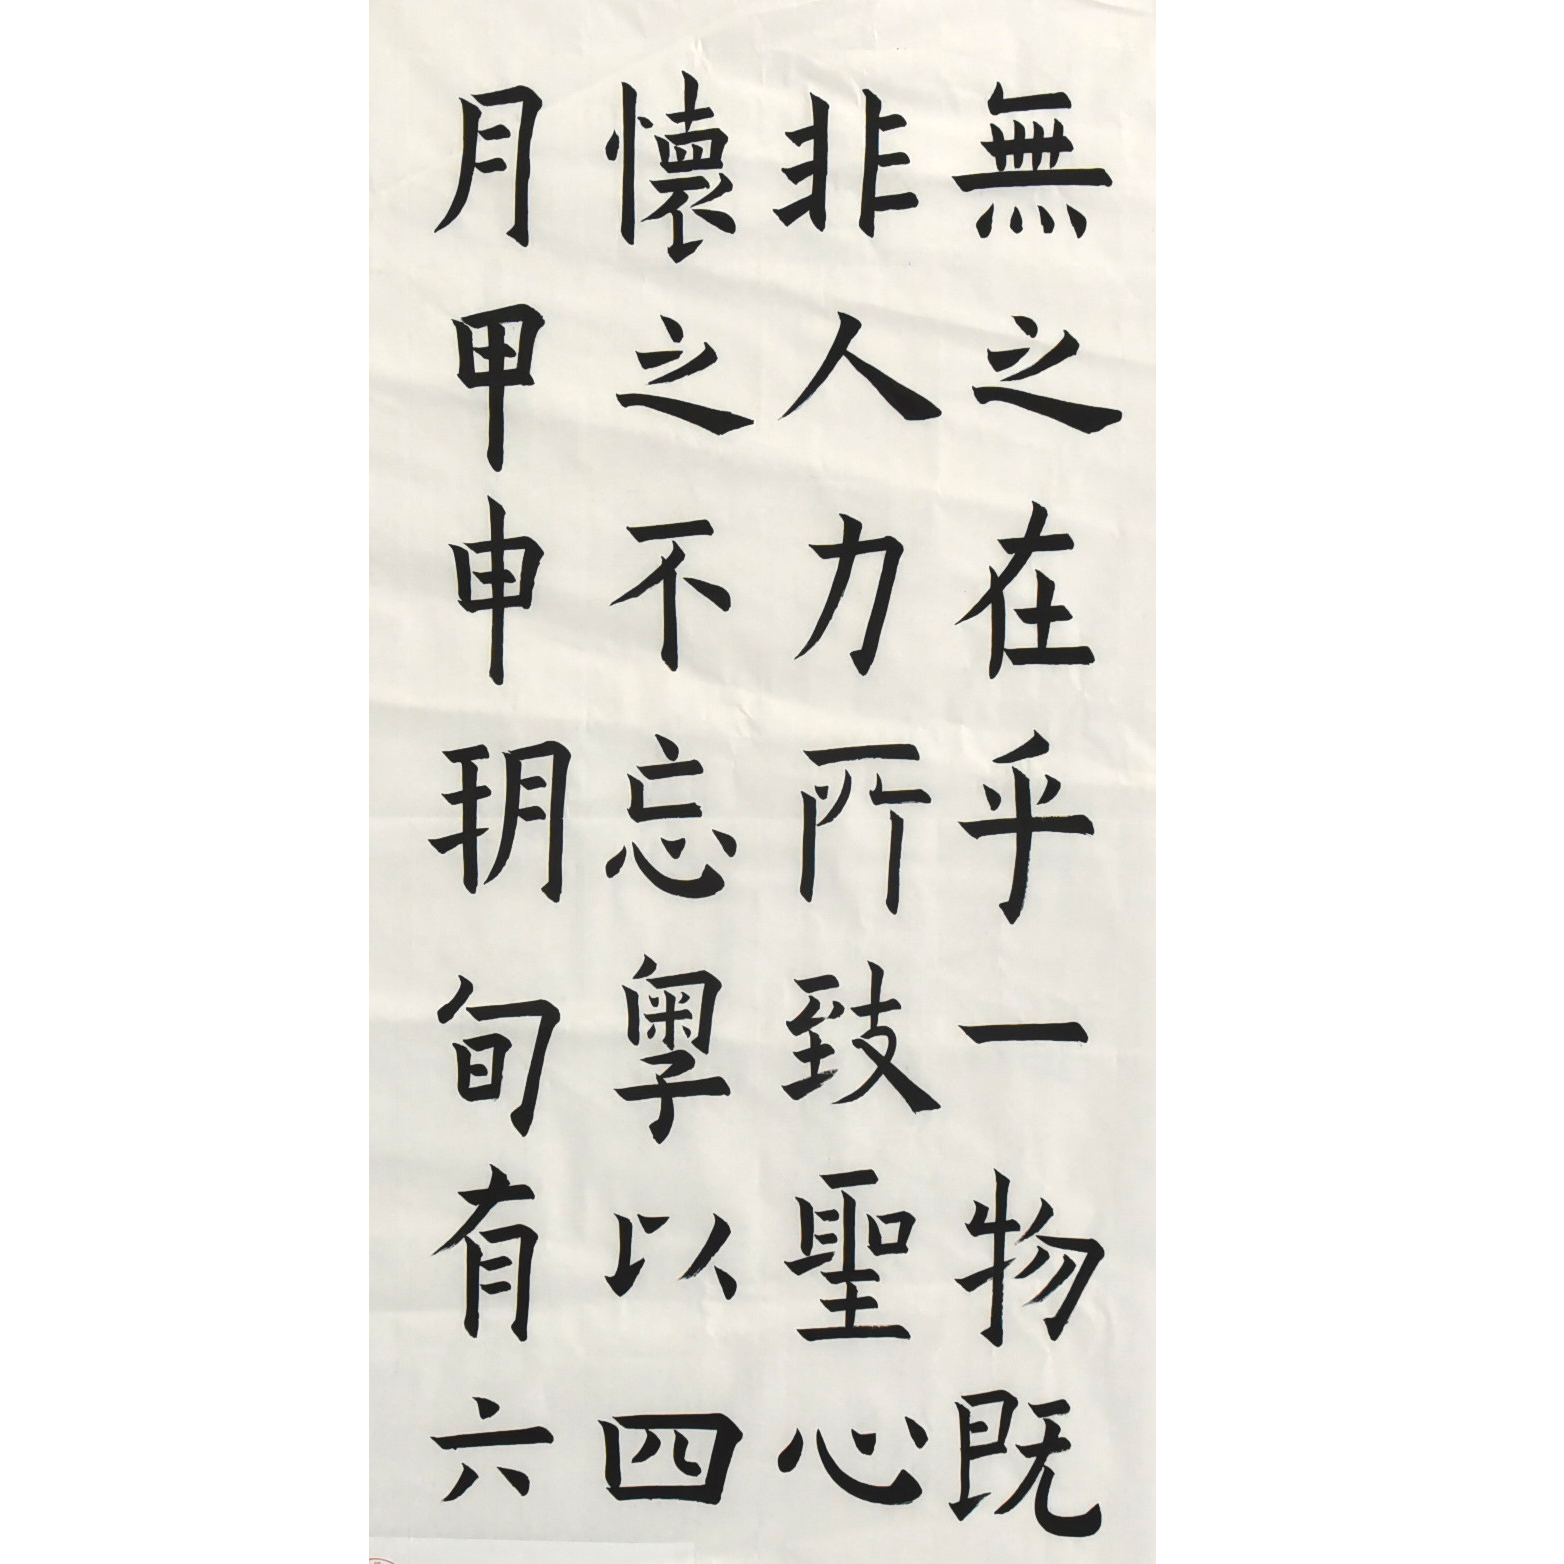 無之在乎一物既
非人力所致聖心
懷之不忘粤以四
月甲申玥旬有六